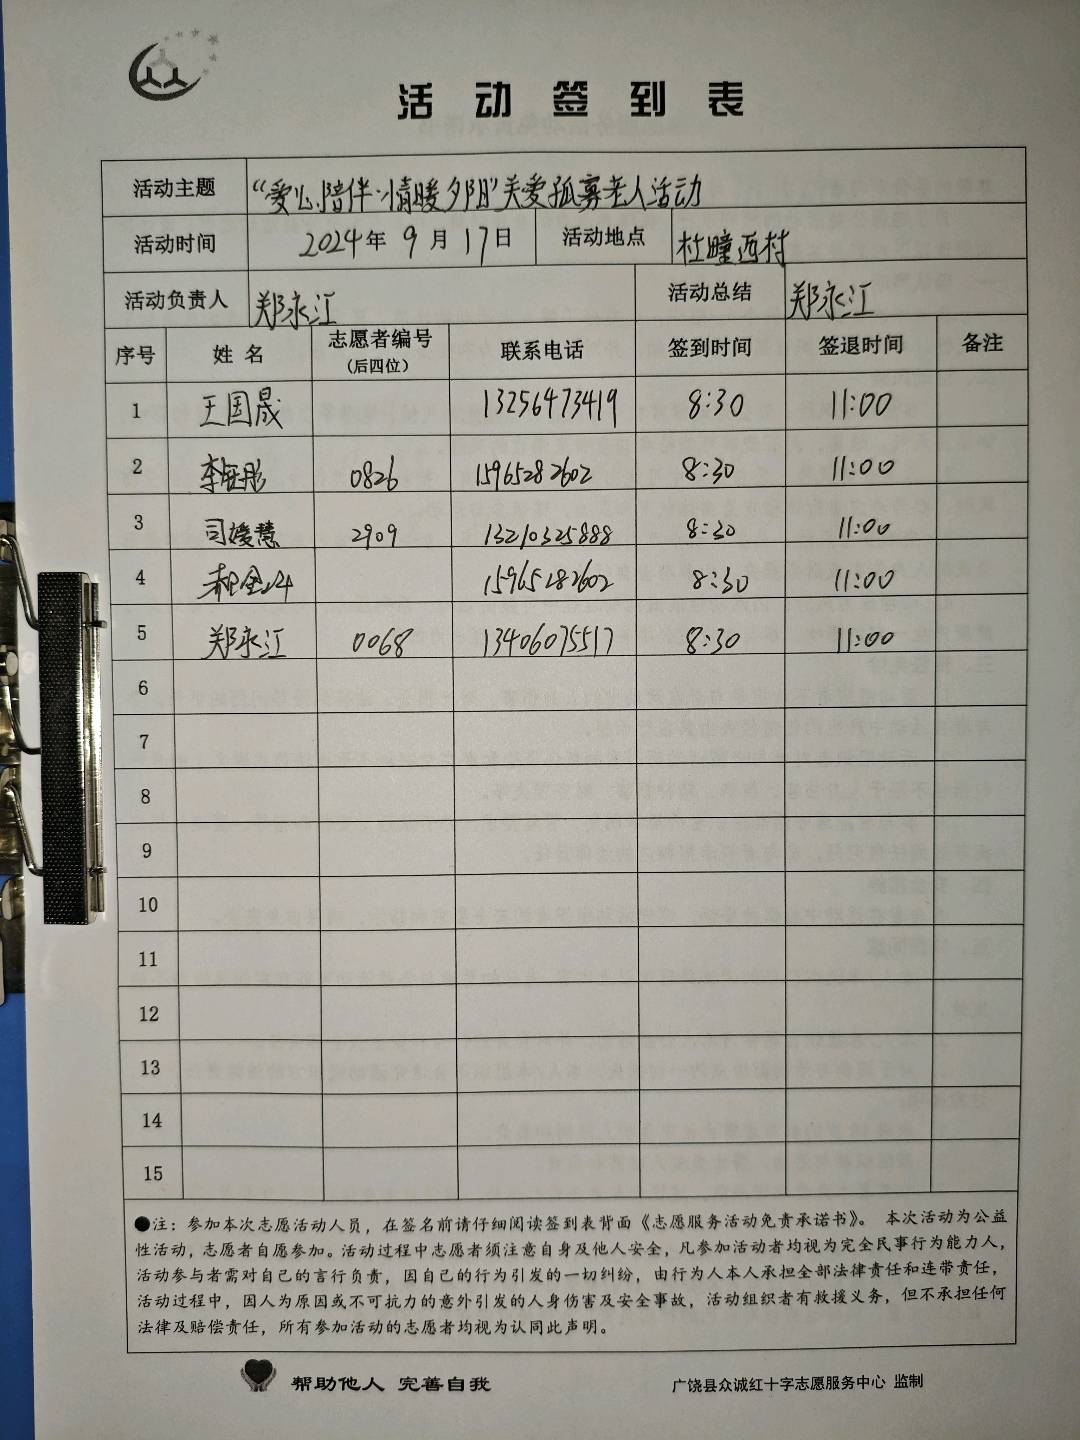 活动签到表
活动主题 “爱心陪伴·情暖夕阳”关爱孤寡老人活动
活动时间 2024年9月17日 活动地点 杜疃西村
活动负责人 郑永江 活动总结 郑永江
序号 姓名 志愿者编号（后四位） 联系电话 签到时间 签退时间 备注
1 王国晟 13256473419 8:30 11:00
2 0826 15965282602 8:30 11:00
3 司媛慧 2909 13210325888 8:30 11:00
4 15965282602 8:30 11:00
5 郑永江 0068 13406075517 8:30 11:00
6
7
8
9
10
11
12
13
14
15
●注：参加本次志愿活动人员，在签名前请仔细阅读签到表背面《志愿服务活动免责承诺书》。 本次活动为公益
性活动，志愿者自愿参加。活动过程中志愿者须注意自身及他人安全，凡参加活动者均视为完全民事行为能力人，
活动参与者需对自己的言行负责，因自己的行为引发的一切纠纷，由行为人本人承担全部法律责任和连带责任，
活动过程中，因人为原因或不可抗力的意外引发的人身伤害及安全事故，活动组织者有救援义务，但不承担任何
法律及赔偿责任，所有参加活动的志愿者均视为认同此声明。
帮助他人 完善自我 广饶县众诚红十字志愿服务中心 监制